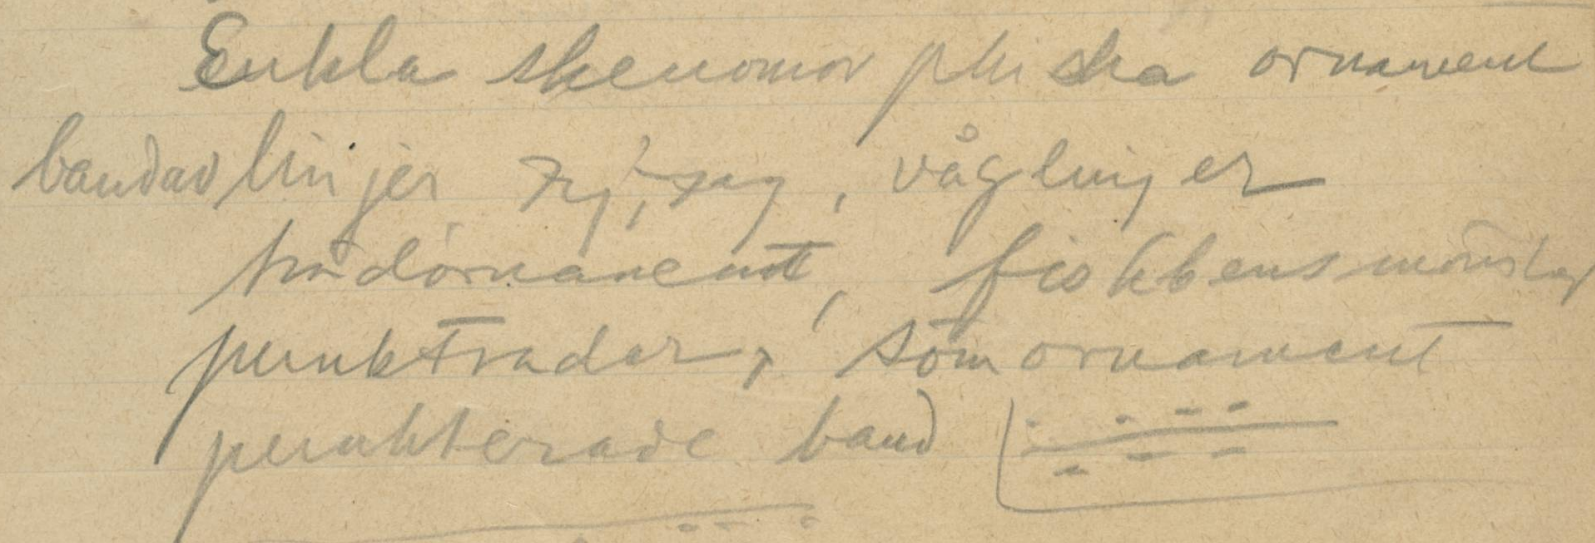 Enkla skeuomorphiska ornament
bandav linjer zigzag, våglinjer
trådornament, fiskbensmönster
punktrader, sömornament
punkterade band